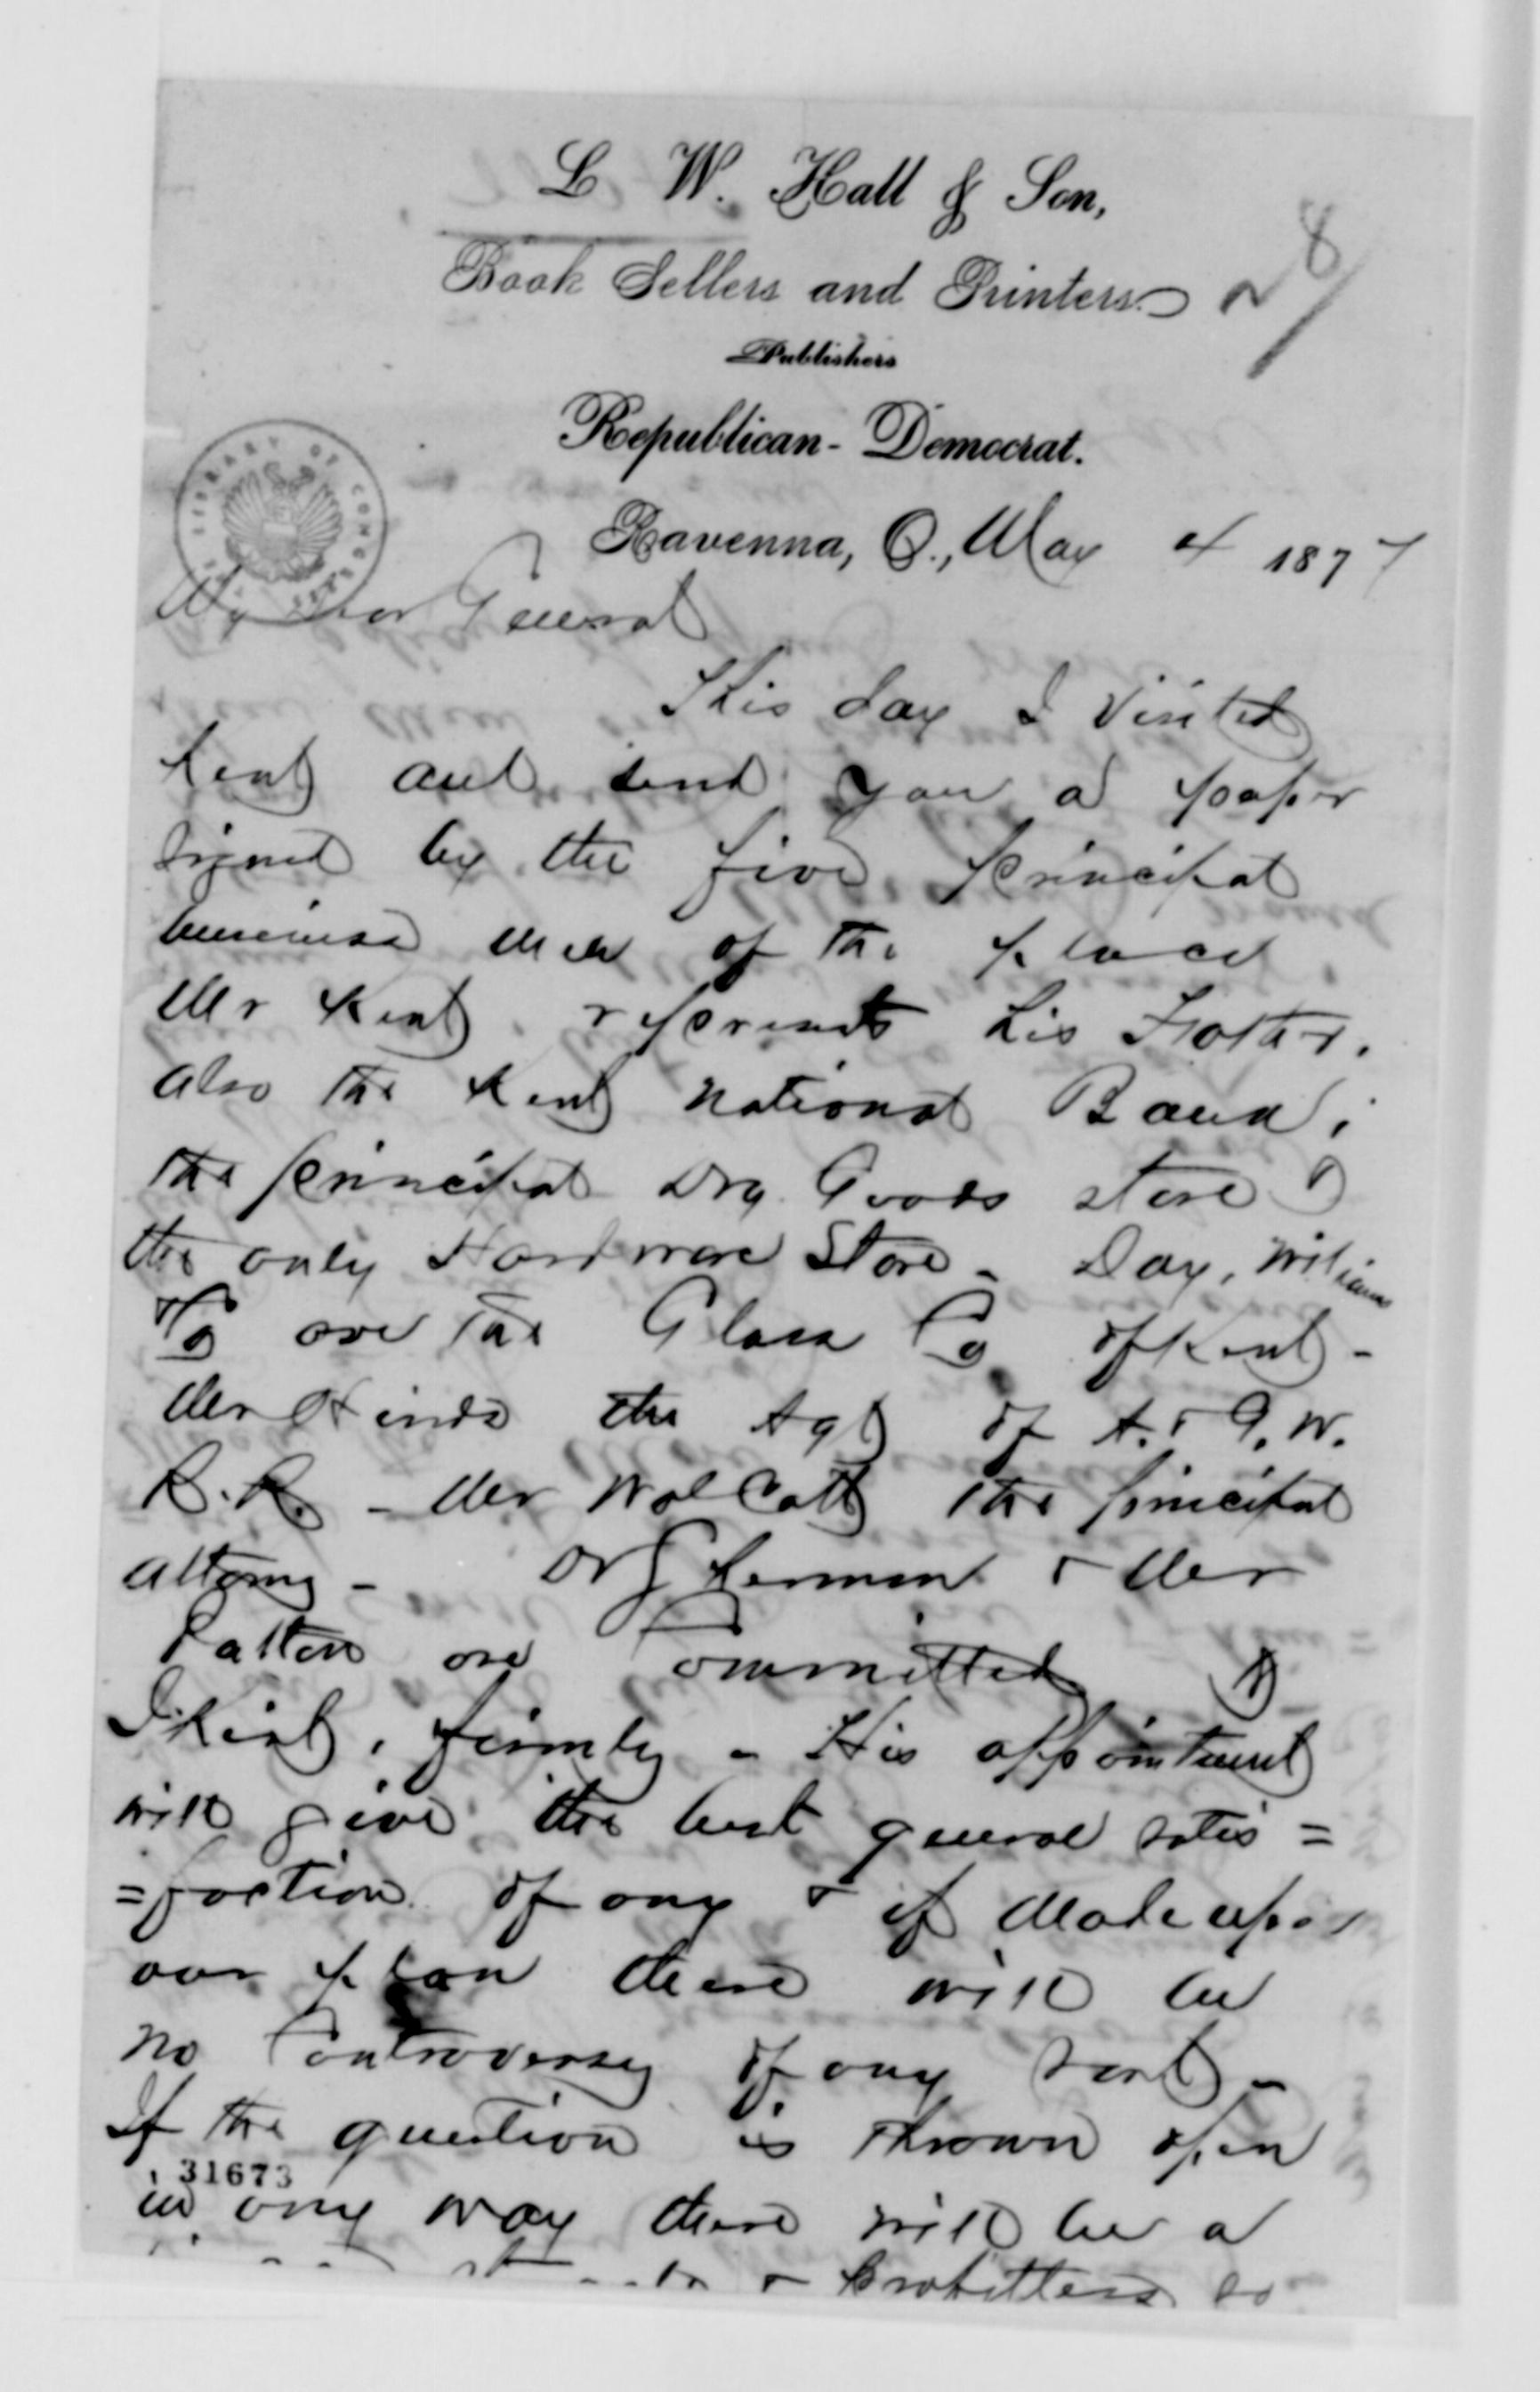 L. W. Hall & Son,
Book Sellers and Printers.
Publishers
Republican-Democrat.
28
LIBRARY OF CONGRESS
Ravenna, O., May 4 1877
My Dear General
This day I visited
Kent and send you a paper
signed by the five principal
business men of the place
Mr Kent represents his Father,
also the Kent National Bank;
the principal Dry Goods store &
the only Hardware Store - Day, Williams
& Co are the Glass Co of Kent -
Mr Hinds the Agt of A. & G. W.
R. R. - Mr Wolcott the principal
attorney - Dr Sherman & Mr
Patton are Committed
I think, firmly - His appointment
will give the best general satis=
=faction of any & if made upon
our plan there will be
no Controversy of any sort -
If the question is thrown open
31673
in any way there will be a
&